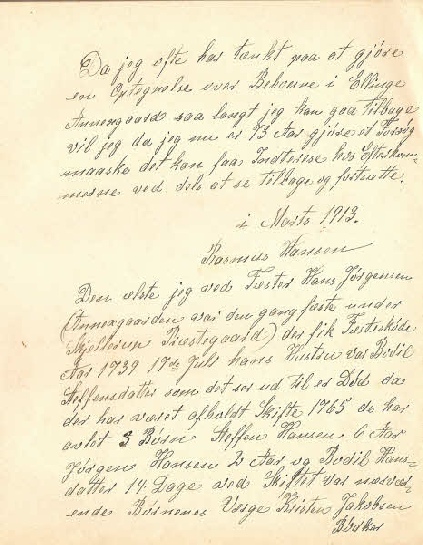 Da jeg ofte har tænkt paa at gjøre
en Optegnelse over Beboerne i Ellinge
Annexgaard saa langt jeg kan gaa tilbage
vil jeg da jeg nu er 73 Aar gjøre et Forsøg
maaske det kan faa Indterese hos Efterkom-
merne ved det at se tilbage og fortsætte.
i Marts 1913.
Rasmus Hansen
Den ælste jeg ved Fæster Hans Jørgensen
(Annexgaarden var den gang fæste under
Skjellerup Præstegaard) der fik Fæsteskøde
Aar 1739 17de Juli hans Hustru var Bodil
Steffensdatter som det ser ud til er Død da
der har været afholdt Skifte 1765 de har
avlet 3 Børn Steffen Hansen 6 Aar
Jørgen Hansen 2 Aar og Bodil Hans-
datter 14 Dage ved Skiftet var nærvær-
ende Børnenes Verge Kristen Jakobsen